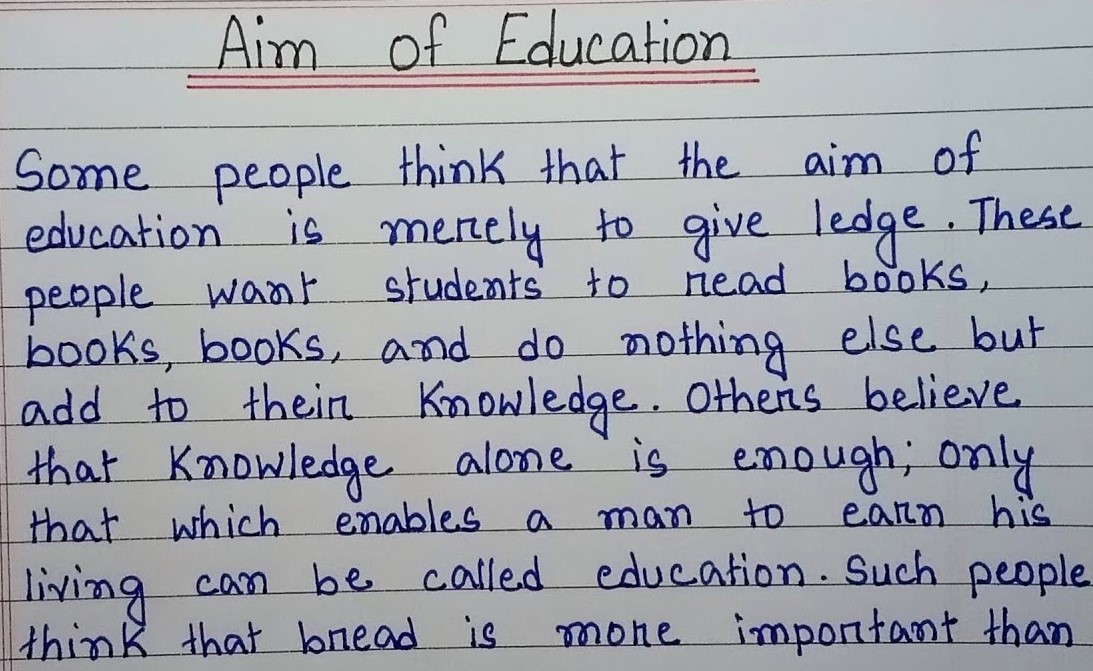 Aim of Education
Some people think that the aim of
education is merely to give ledge. These
people want students to read books,
books, books, and do nothing else but
add to their Knowledge. Others believe
that Knowledge alone is enough; only
that which enables a man to earn his
living can be called education. Such people
think that bread is more important than